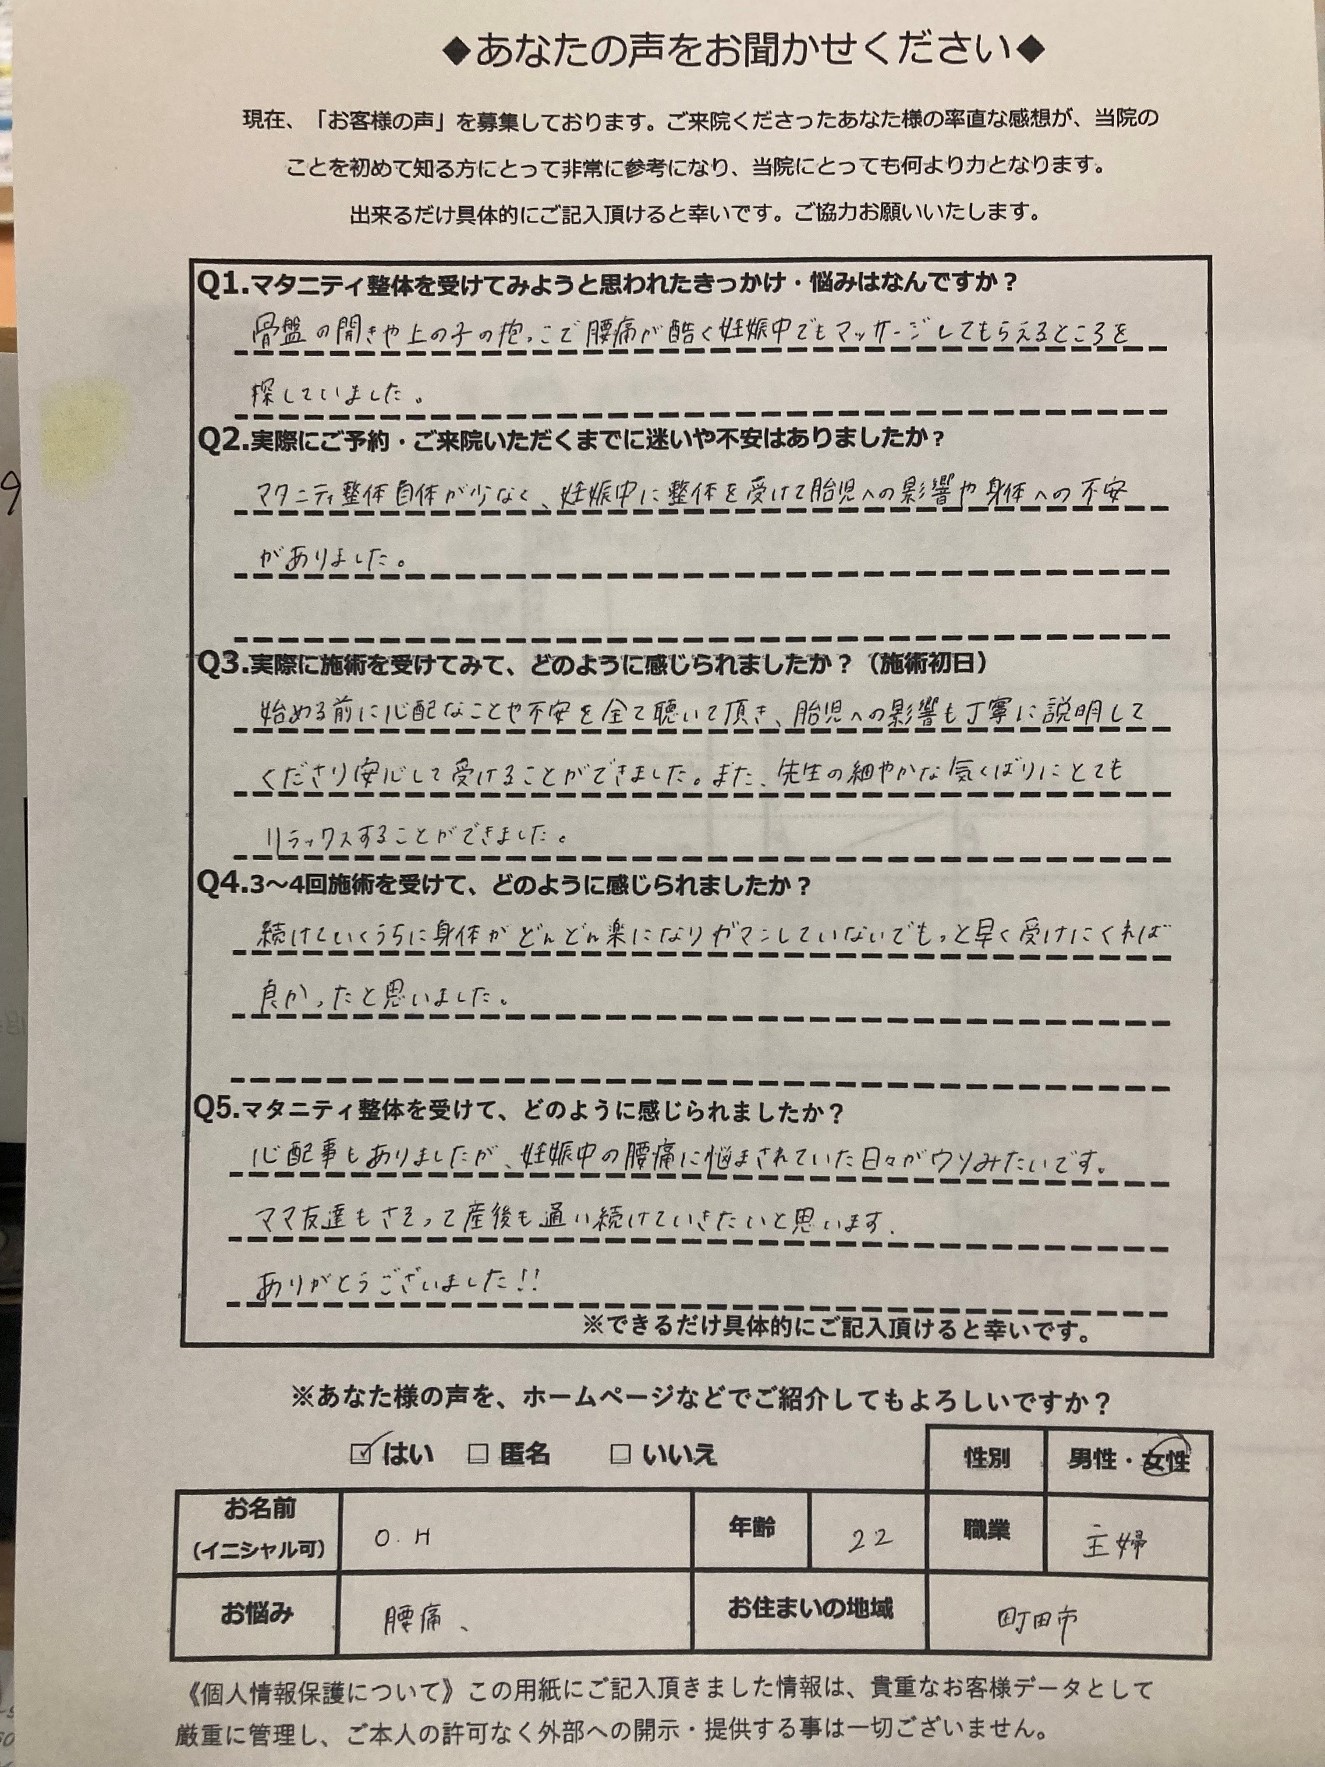 ◆あなたの声をお聞かせください◆
現在、「お客様の声」を募集しております。ご来院くださったあなた様の率直な感想が、当院の
ことを初めて知る方にとって非常に参考になり、当院にとっても何より力となります。
出来るだけ具体的にご記入頂けると幸いです。ご協力お願いいたします。
Q1.マタニティ整体を受けてみようと思われたきっかけ・悩みはなんですか？
骨盤の開きや上の子の抱っこで腰痛が酷く妊娠中でもマッサージしてもらえるところを
探していました。
Q2.実際にご予約・ご来院いただくまでに迷いや不安はありましたか？
マタニティ整体自体が少なく、妊娠中に整体を受けて胎児への影響や身体への不安
がありました。
Q3.実際に施術を受けてみて、どのように感じられましたか？（施術初日）
始める前に心配なことや不安を全て聴いて頂き、胎児への影響も丁寧に説明して
くださり安心して受けることができました。また、先生の細やかな気くばりにとても
リラックスすることができました。
Q4.3～4回施術を受けて、どのように感じられましたか？
続けていくうちに身体がどんどん楽になりガマンしていないでもっと早く受けにくれば
良かったと思いました。
Q5.マタニティ整体を受けて、どのように感じられましたか？
心配事もありましたが、妊娠中の腰痛に悩まされていた日々がウソみたいです。
ママ友達もさそって産後も通い続けていきたいと思います.
ありがとうございました!!
※できるだけ具体的にご記入頂けると幸いです。
※あなた様の声を、ホームページなどでご紹介してもよろしいですか？
☑はい □匿名 □いいえ
性別 男性・女性
お名前
（イニシャル可） O.H 年齢 22 職業 主婦
お悩み 腰痛、 お住まいの地域 町田市
《個人情報保護について》この用紙にご記入頂きました情報は、貴重なお客様データとして
厳重に管理し、ご本人の許可なく外部への開示・提供する事は一切ございません。